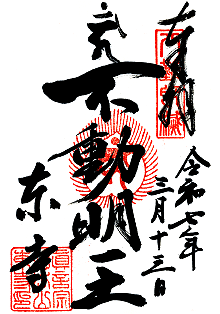 奉拝
令和七年
三月十三日
不動明王
东寺